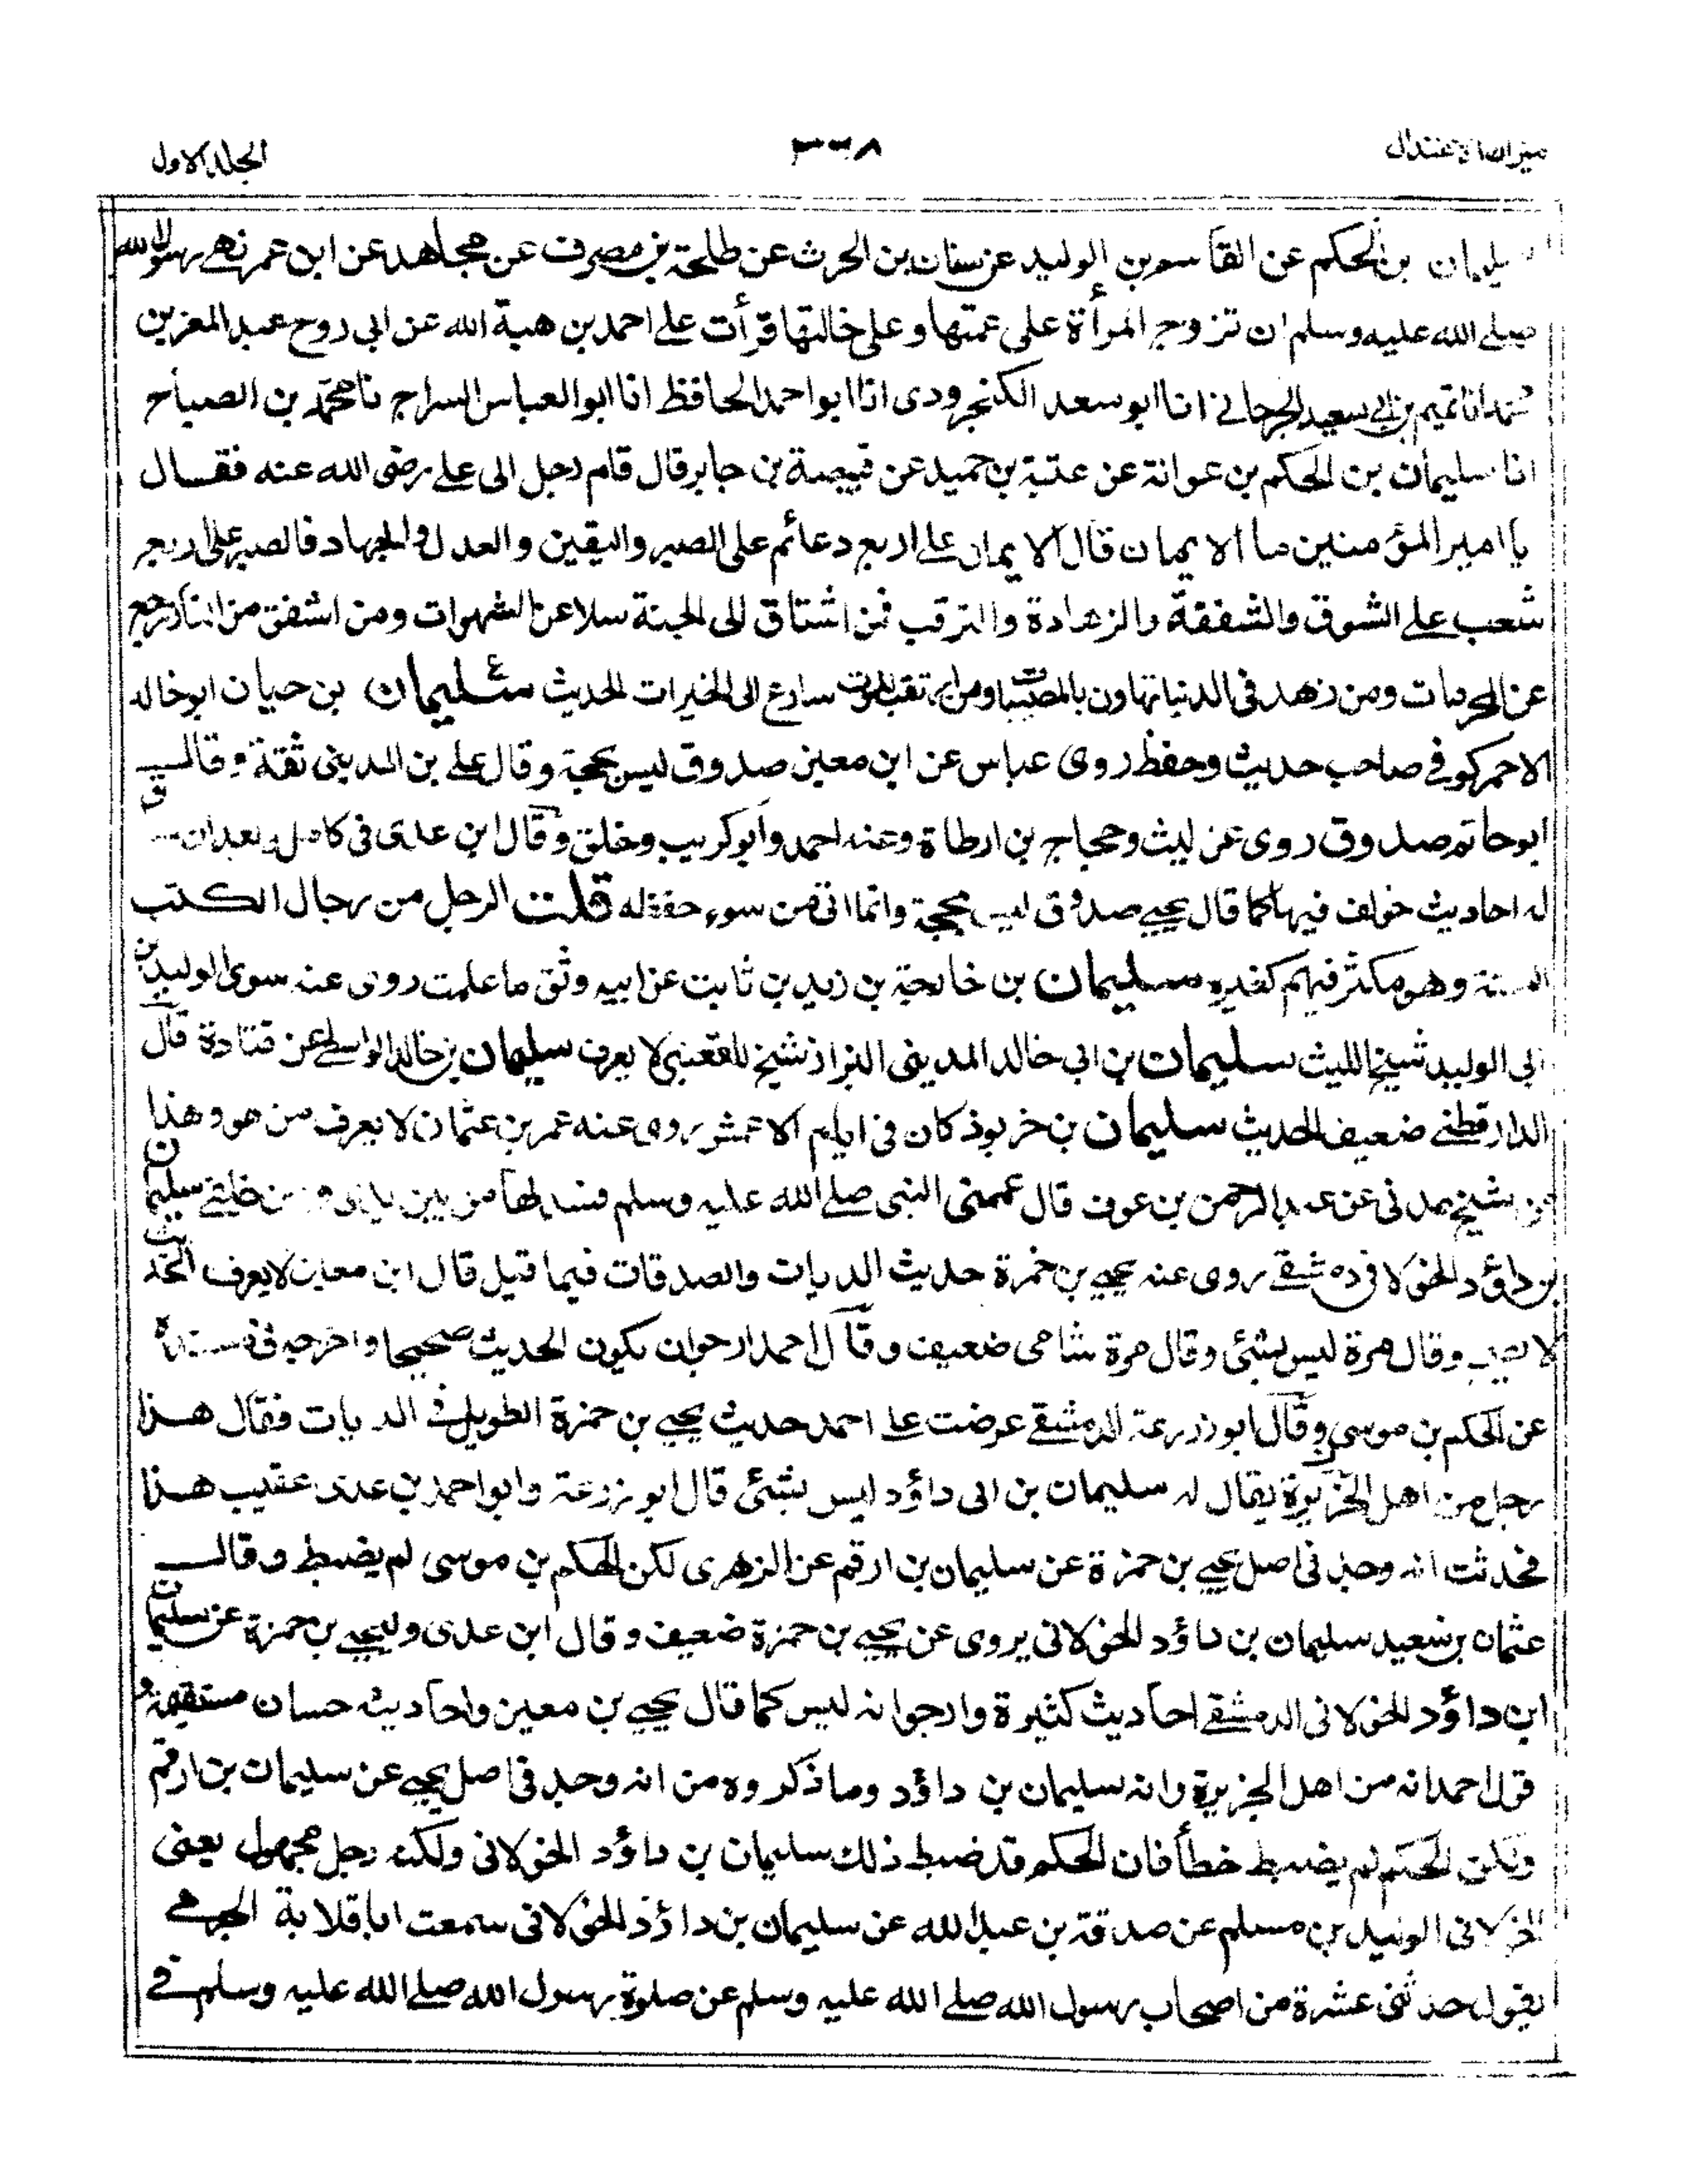 ميزان الاعتدال
٣٣٨
المجلد الاول
سليمان بن الحكم عن القاسم بن الوليد عن سنان بن الحرث عن طلحة بن مصرف عن مجاهد عن ابن عمر نهى رسول الله
صلے الله عليه وسلم ان تزوج المرأة على عمتها وعلى خالتها قرأت علے احمد بن هبة الله عن ابى روح عبد المعز بن
محمد انا تميم بن ابى سعيد الجرجانے انا ابو سعد الكنجرودى انا ابو احمد الحافظ انا ابو العباس السراج نا محمد بن الصباح
انا سليمان بن الحكم بن عوانة عن عتبة بن حميد عن قبيصة بن جابر قال قام رجل الى على رضى الله عنه فقال
يا امير المؤمنين ما الايمان قال الايمان علے اربع دعائم على الصبر واليقين والعدل والجهاد فالصبر على اربع
شعب علے الشوق والشفقة والزهادة والترقب فمن اشتاق الى الجنة سلا عن الشهوات ومن اشفق من النار رجع
عن الحرمات ومن زهد فى الدنيا تهاون بالمصيبات ومن ارتقب الموت سارع الى الخيرات الحديث سليمان بن حيان ابو خالد
الاحمر كوفے صاحب حديث وحفظ روى عباس عن ابن معين صدوق ليس بحجة وقال علے بن المدينى ثقة وقال
ابو حاتم صدوق روى عن ليث وحجاج بن ارطاة وعنه احمد وابو كريب وخلق وقال ابن عدى فى كامله بعد ان ساق
له احاديث خولف فيها كما قال يحيے صدوق ليس بحجة وانما اتى من سوء حفظه قلت الرجل من رجال الكتب
الستة وهو مكثر فيهم كغيره سليمان بن خارجة بن زيد بن ثابت عن ابيه وثق ما علمت روى عنه سوى الوليد بن
ابى الوليد شيخ الليث سليمان بن ابى خالد المدينى البزاز شيخ للقعنبى لا يعرف سليمان بن خالد الواسطے عن قتادة قال
الدارقطنے ضعيف الحديث سليمان بن خربوذ كان فى ايام الاعمش روى عنه عمر بن عثمان لا يعرف من هو وهذا
عن شيخ مدنى عن عبد الرحمن بن عوف قال عممنى النبى صلے الله عليه وسلم فسدلها من بين يدى ومن خلفے سليمان
بن داؤد الخولانى دمشقے روى عنه يحيے بن حمزة حديث الديات والصدقات فيما قيل قال ابن معين لا يعرف الحديث
لا يصح وقال مرة ليس بشئ وقال مرة شامى ضعيف وقال احمد ارجو ان يكون الحديث صحيحا واخرجه فى مسنده
عن الحكم بن موسى وقال ابو زرعة الدمشقے عرضت على احمد حديث يحيے بن حمزة الطويل فے الديات فقال هذا
رجل من اهل الجزيرة يقال له سليمان بن ابى داؤد ليس بشئ قال ابو زرعة وابو احمد بن عدى عقيب هذا
فحدثت انه وجد فى اصل يحيے بن حمزة عن سليمان بن ارقم عن الزهرى لكن الحكم بن موسى لم يضبط وقال
عثمان بن سعيد سليمان بن داؤد الخولانى يروى عن يحيے بن حمزة ضعيف وقال ابن عدى وليحيے بن حمزة عن سليمان
ابن داؤد الخولانى الدمشقے احاديث كثيرة وارجو انه ليس كما قال يحيے بن معين واحاديثه حسان مستقيمة و
قول احمد انه من اهل الجزيرة وانه سليمان بن داؤد وما ذكروه من انه وجد فى اصل يحيے عن سليمان بن ارقم
ولكن الحكم لم يضبط خطأ فان الحكم قد ضبط ذلك سليمان بن داؤد الخولانى ولكنه رجل مجهول يعنى
الخولانى الوليد بن مسلم عن صدقة بن عبد الله عن سليمان بن داؤد الخولانى سمعت ابا قلابة الجرمے
يقول حدثنى عشرة من اصحاب رسول الله صلے الله عليه وسلم عن صلوة رسول الله صلے الله عليه وسلم فے